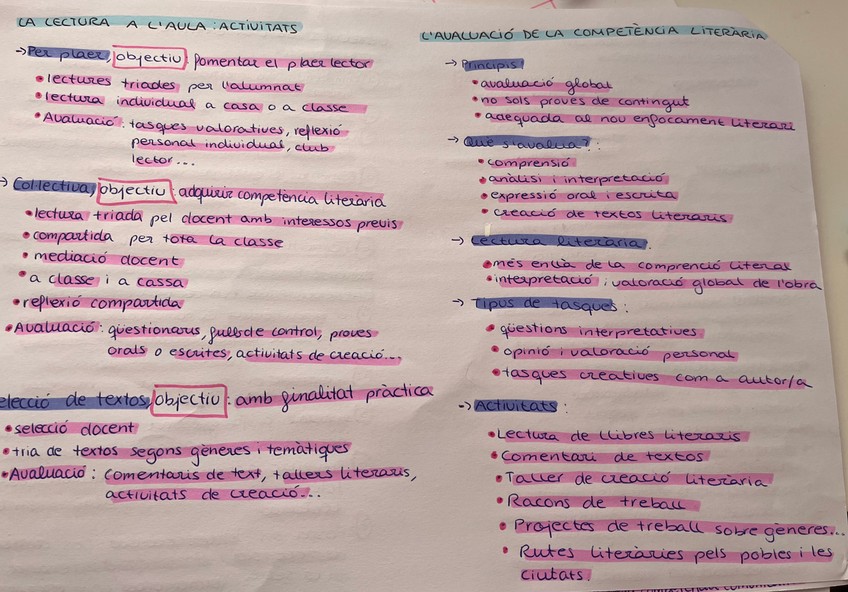 LA LECTURA A L'AULA: ACTIVITATS
→ Per plaer, objectiu: fomentar el plaer lector
• lectures triades per l'alumnat
• lectura individual a casa o a classe
• Avaluació: tasques valoratives, reflexió
personal individual, club
lector...
→ Col·lectiva, objectiu: adquirir competència literària
• lectura triada pel docent amb interessos previs
• compartida per tota la classe
• mediació docent
• a classe i a cassa
• reflexió compartida
• Avaluació: qüestionaris, fulls de control, proves
orals o escrites, activitats de creació...
elecció de textos, objectiu: amb finalitat pràctica
• selecció docent
• tria de textos segons gèneres i temàtiques
• Avaluació: comentaris de text, tallers literaris,
activitats de creació...
L'AVALUACIÓ DE LA COMPETÈNCIA LITERÀRIA
→ Principis
• avaluació global
• no sols proves de contingut
• adequada al nou enfocament literari
→ Què s'avalua?:
• comprensió
• anàlisi i interpretació
• expressió oral i escrita
• creació de textos literaris
→ Lectura literària:
• més enllà de la comprenció literal
• interpretació i valoració global de l'obra
→ Tipus de tasques:
• qüestions interpretatives
• opinió i valoració personal
• tasques creatives com a autor/a
→ Activitats:
• Lectura de llibres literaris
• Comentari de textos
• Taller de creació literària
• Racons de treball
• Projectes de treball sobre gèneres...
• Rutes literàries pels pobles i les
ciutats.